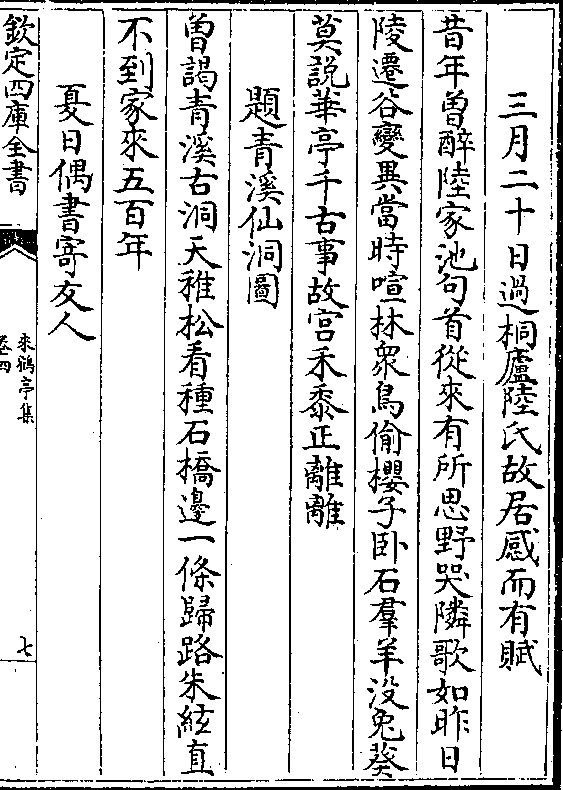 三月二十日過桐廬陸氏故居感而有賦
昔年曾醉陸家池句首從來有所思野哭隣歌如昨日
陵遷谷變異當時喧林衆鳥偷櫻子卧石羣羊没兎葵
莫説華亭千古事故宫禾黍正離離
題青溪仙洞圖
曽謁青溪古洞天稚松看種石橋邊一條歸路朱絃直
不到家來五百年
夏日偶書寄友人
欽定四庫全書
來鶴亭集
卷四
七